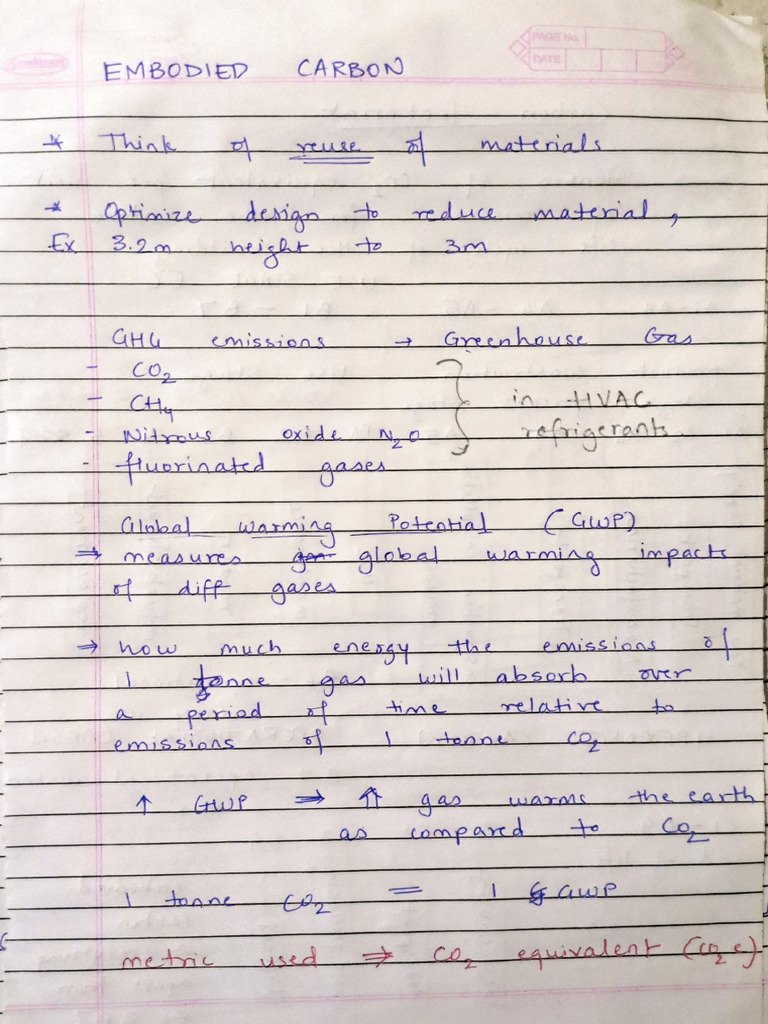 PAGE No.
DATE
EMBODIED CARBON
* Think of reuse of materials
* Optimize design to reduce material,
Ex 3.2m height to 3m
GHG emissions → Greenhouse Gas
- CO₂
- CH₄
- Nitrous oxide N₂O
- fluorinated gases
} in HVAC
refrigerants
Global warming Potential (GWP)
⇒ measures global warming impacts
of diff gases
⇒ how much energy the emissions of
1 tonne gas will absorb over
a period of time relative to
emissions of 1 tonne CO₂
↑ GWP ⇒ ⇑ gas warms the earth
as compared to CO₂
1 tonne CO₂ = 1 GWP
metric used ⇒ CO₂ equivalent (CO₂e)